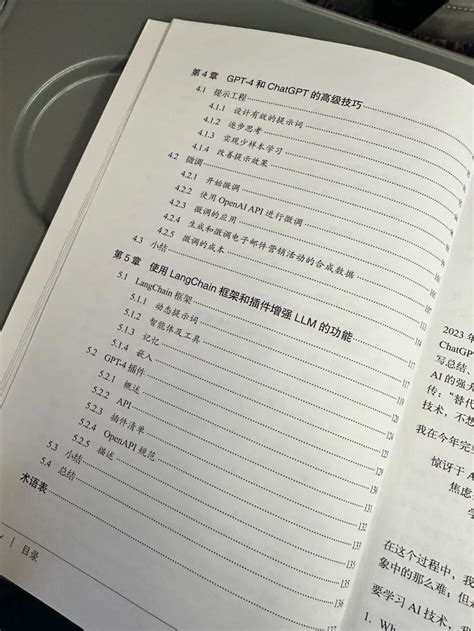 第4章 GPT-4 和 ChatGPT 的高级技巧
4.1 提示工程
4.1.1 设计有效的提示词
4.1.2 逐步思考
4.1.3 实现少样本学习
4.1.4 改善提示效果
4.2 微调
4.2.1 开始微调
4.2.2 使用 OpenAI API 进行微调
4.2.3 微调的应用
4.2.4 生成和微调电子邮件营销活动的合成数据
4.2.5 微调的成本
4.3 小结
第5章 使用 LangChain 框架和插件增强 LLM 的功能
5.1 LangChain 框架
5.1.1 动态提示词
5.1.2 智能体及工具
5.1.3 记忆
5.1.4 嵌入
5.2 GPT-4 插件
5.2.1 概述
5.2.2 API
5.2.3 插件清单
5.2.4 OpenAPI 规范
5.2.5 描述
5.3 小结
5.4 总结
术语表
| 目录
2023 年
ChatGP
写总结、
AI 的强大
传：“替代
技术，不想
我在今年完
惊讶于 A
焦虑
学
在这个过程中，我
象中的那么难；但
要学习 AI 技术，我
1. Why